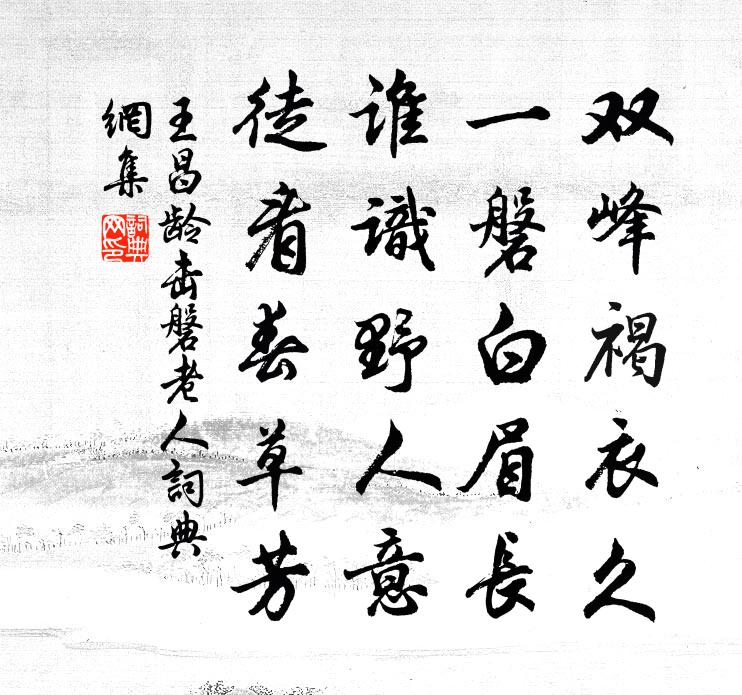 双峰褐衣久
一磐白眉長
谁識野人意
徒看春草芳
王昌龄击磐老人詞典
網集
詞典
网印